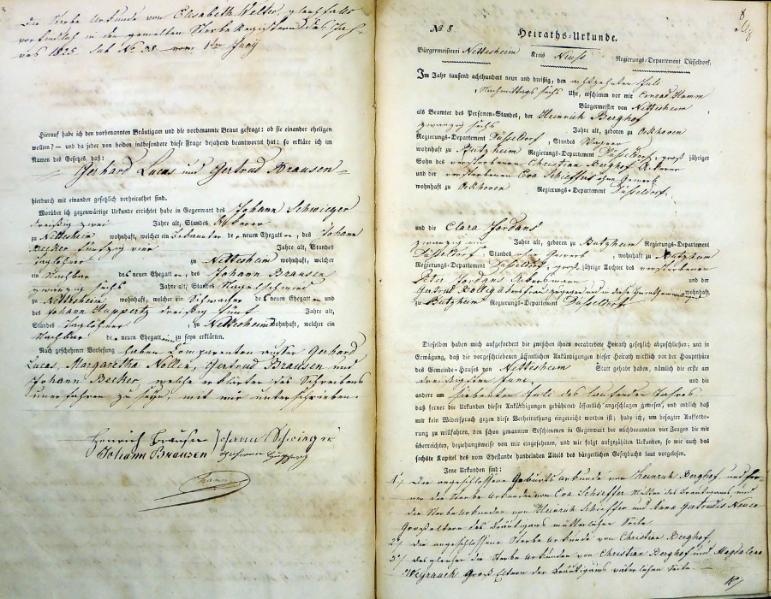 Die Sterbe Urkunde von Elisabeth Nelles, gleichfalls
vorfindlich in den gemelten Sterbe Registern des Jah-
res 1825 sub No 38 vom
Hierauf habe ich den vorbenannten Bräutigam und die vorbenannte Braut gefragt: ob sie einander ehelichen
wollen? — und da jeder von beiden insbesondere diese Frage bejahend beantwortet hat: so erkläre ich im
Namen des Gesetzes, daß:
Gerhard Lucas und Gertrud Brausen
hierdurch mit einander gesetzlich verheirathet sind.
Worüber ich gegenwärtige Urkunde errichtet habe in Gegenwart des Johann Schwieger
dreißig zwei Jahre alt, Standes Ackerer
zu Nettesheim wohnhaft, welcher ein Bekannter de neuen Ehegatten, des Johann
Becker fünfzig vier Jahre alt, Standes
Taglöhner zu Nettesheim wohnhaft, welcher ein
Nachbar des neuen Ehegatten, des Johann Brausen
zwanzig sechs Jahre alt, Standes Nagelschmied
zu Nettesheim wohnhaft, welcher ein Schwager des neuen Ehegatten und
des Johann Huppertz dreißig fünf Jahre alt,
Standes Taglöhner zu Nettesheim wohnhaft, welcher ein
Nachbar de neuen Ehegatten zu seyn erklärten.
Nach geschehener Vorlesung haben Comparenten außer Gerhard
Lucas, Margaretha Nolles, Gertrud Brausen und
Johann Becker, welche erklärten des Schreibens
unerfahren zu sein, mit mir unterschrieben.
Heinrich Brausen Johann Schwieger
Johann Brausen Johann Huppertz
Hamm
No 8 Heiraths-Urkunde.
Bürgermeisterei Nettesheim Kreis Neuss Regierungs-Departement Düsseldorf.
Im Jahr tausend achthundert neun und dreißig, den achtzehnten Juli
Nachmittags sechs Uhr, erschienen vor mir Conrad Hamm
Bürgermeister von Nettesheim
als Beamten des Personen-Standes, der Heinrich Berghof
zwanzig sechs Jahre alt, geboren zu Oekhoven
Regierungs-Departement Düsseldorf, Standes
wohnhaft zu Butzheim Regierungs-Departement Düsseldorf, großjähriger
Sohn des verstorbenen Christian Berghof Ackerer
und der verstorbenen Eva Schieffer ohne Gewerb
wohnhaft zu Oekhoven Regierungs-Departement Düsseldorf.
und die Clara Jordans
zwanzig Jahre alt, geboren zu Butzheim Regierungs-Departement
Düsseldorf, Standes ohne Gewerb, wohnhaft zu Butzheim
Regierungs-Departement Düsseldorf, großjährige Tochter des verstorbenen
Peter Jordans Ackersmann und der
Gertrud
zu Butzheim Regierungs-Departement Düsseldorf.
Dieselben haben mich aufgefordert die zwischen ihnen verabredete Heirath gesetzlich abzuschließen; und in
Erwägung, daß die vorgeschriebenen öffentlichen Ankündigungen dieser Heirath wirklich vor der Hauptthüre
des Gemeinde-Hauses von Nettesheim Statt gehabt haben, nämlich die erste an
den dreißigsten Juni und die
andere am siebenten Juli des laufenden Jahres
daß ferner die Urkunden dieser Ankündigungen gebührend öffentlich angeschlagen gewesen, und endlich daß
mir kein Widerspruch gegen diese Verheirathung eingereicht worden ist; habe ich, um besagter Aufforde-
rung zu willfahren, den schon genannten Erschienenen in Gegenwart der nachbenannten vier Zeugen die vor-
gelegten, beziehungsweise von mir eingesehenen, und wie folgt aufgezählten Urkunden, so wie auch das
sechste Kapitel des vom Ehestande handelnden Titels des bürgerlichen Gesetzbuchs laut vorgelesen.
Jene Urkunden sind:
1) Die angeschlossene Geburts Urkunde von Heinrich Berghof und fer-
ner die Sterbe Urkunden von Eva Schieffer Mutter des Bräutigams, und
der Sterbeurkunden von Heinrich Schieffer und Anna Gertrudis
Großeltern des Bräutigams mütterlicher Seite
2) Die angeschlossene Sterbe Urkunde von Christian Berghof,
3) desgleichen die Sterbe Urkunden von Christian Berghof und Magdalena
Weyrauch Groß Eltern des Bräutigams väterlicher Seite